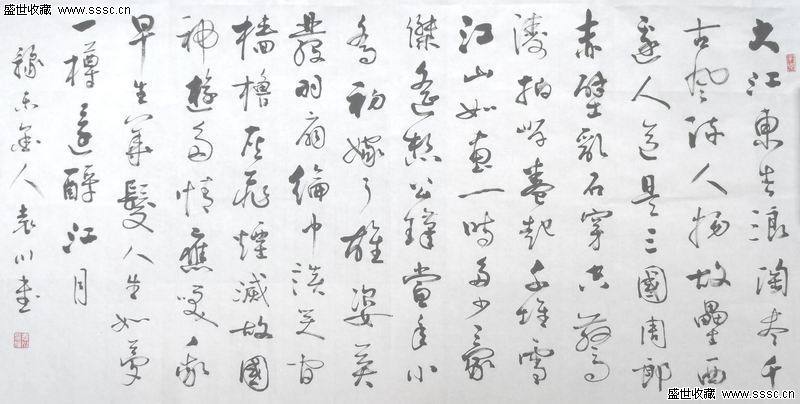 盛世收藏 www.sssc.cn
盛世收藏 www.sssc.cn
大江東去浪淘盡千
古風流人物故壘西
邊人道是三國周郎
赤壁亂石穿空驚
濤拍岸卷起千堆雪
江山如畫一時多少豪
傑遙想公瑾當年小
喬初嫁了雄姿英
發羽扇綸巾談笑間
檣櫓灰飛煙滅故國
神遊多情應笑我
早生華髮人生如夢
一樽還酹江月
人袁川書
盛世收藏 www.sssc.cn